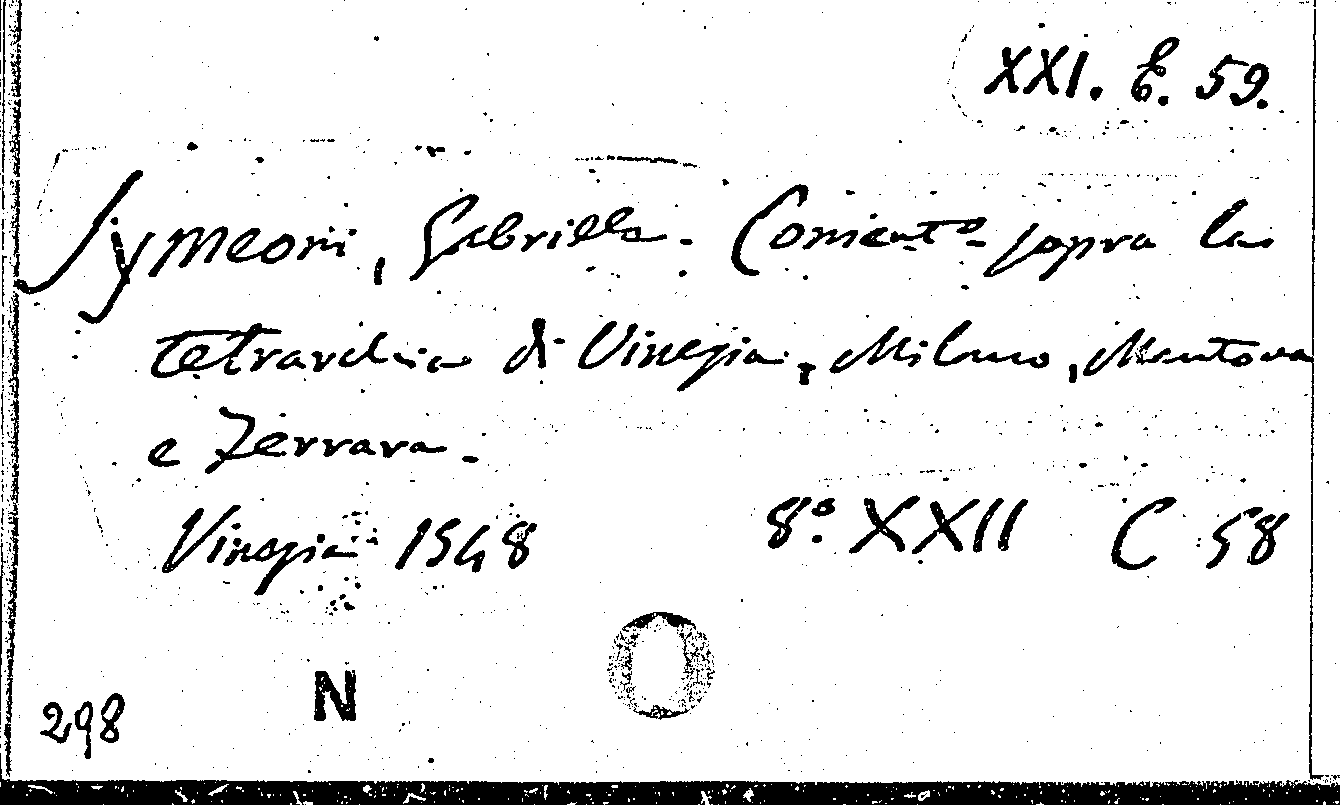 XXI. E. 59.
Symeoni, Gabriello. Coment.o sopra la
tetrarchia di Vinegia, Milano, Mantova
e Ferrara.
Vinegia 1548 8.o XXII C 58
N
298